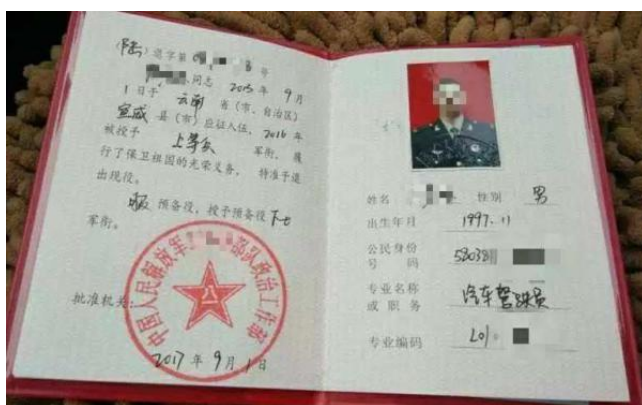 (陆)退字第 号
同志 2015 年 9 月
1 日于 云南 省(市、自治区)
宣威 县(市)应征入伍, 2016 年
被授予 上等兵 军衔, 履
行了保卫祖国的光荣义务, 特准予退
出现役。
服 预备役, 授予预备役 下士
军衔。
批准机关:
中国人民解放军 部队政治工作部
八一
2017 年 9 月 1 日
姓名 性别 男
出生年月 1997.11
公民身份 号码 53038
专业名称 或职务 汽车驾驶员
专业编码